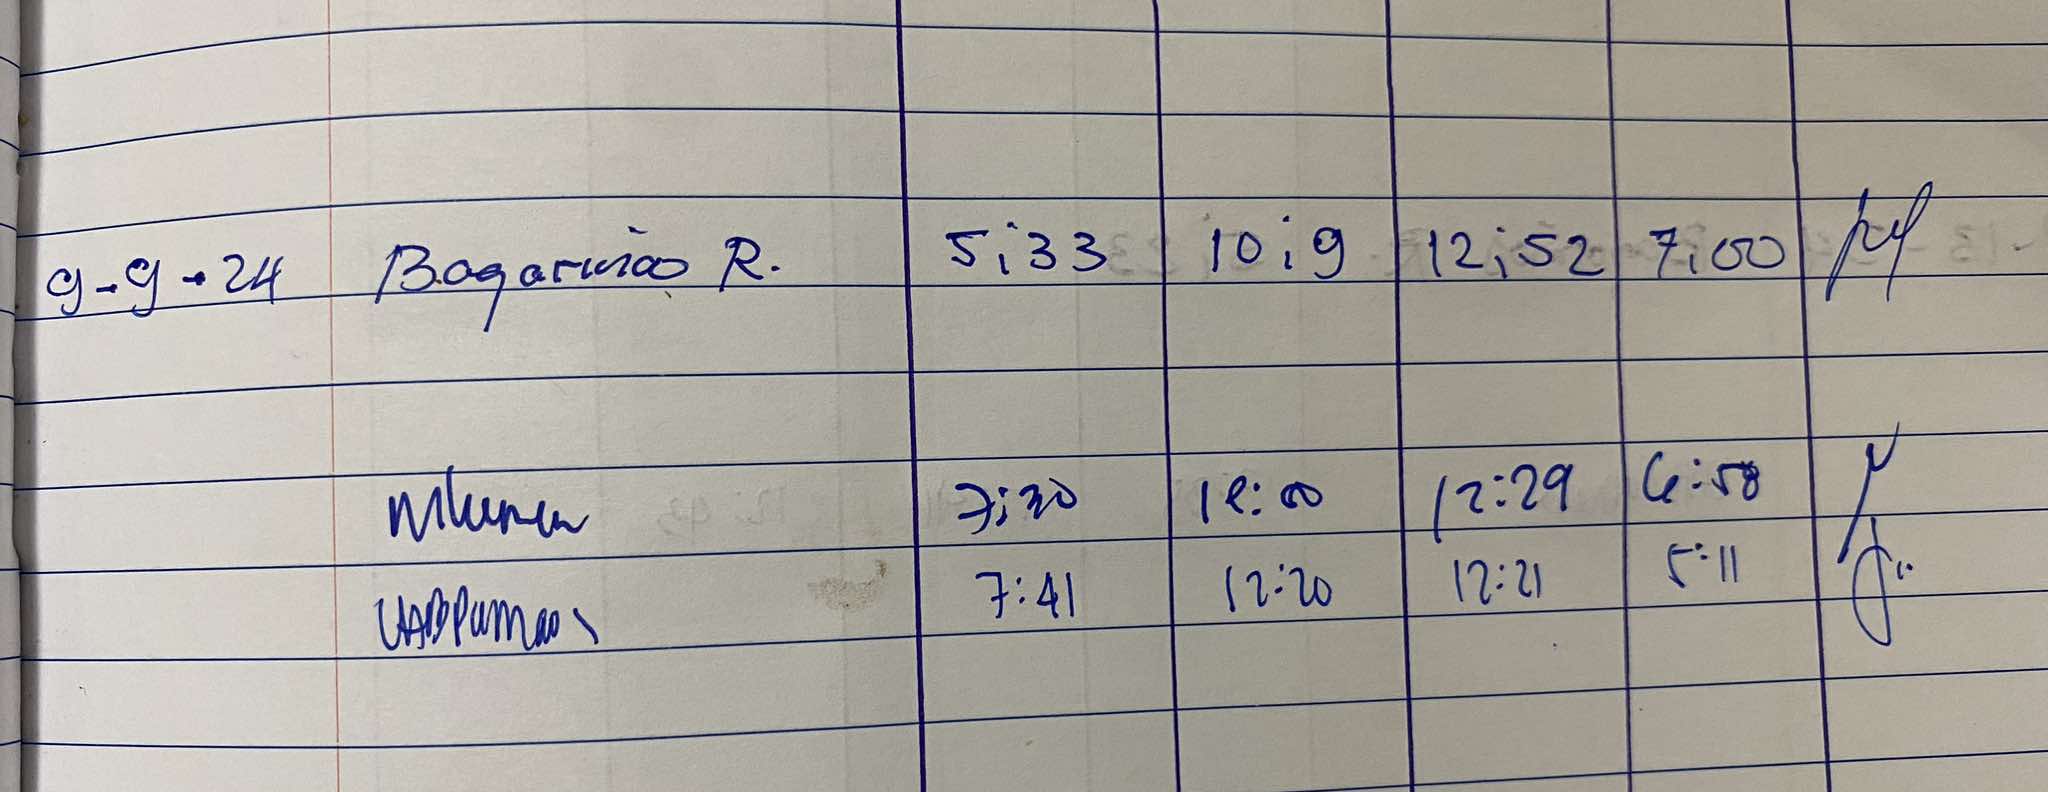 9-9-24 Bagarição R. 5;33 10;9 12;52 7;00
7;30 12:00 12:29 6:58
7:41 12:20 12:21 5:11